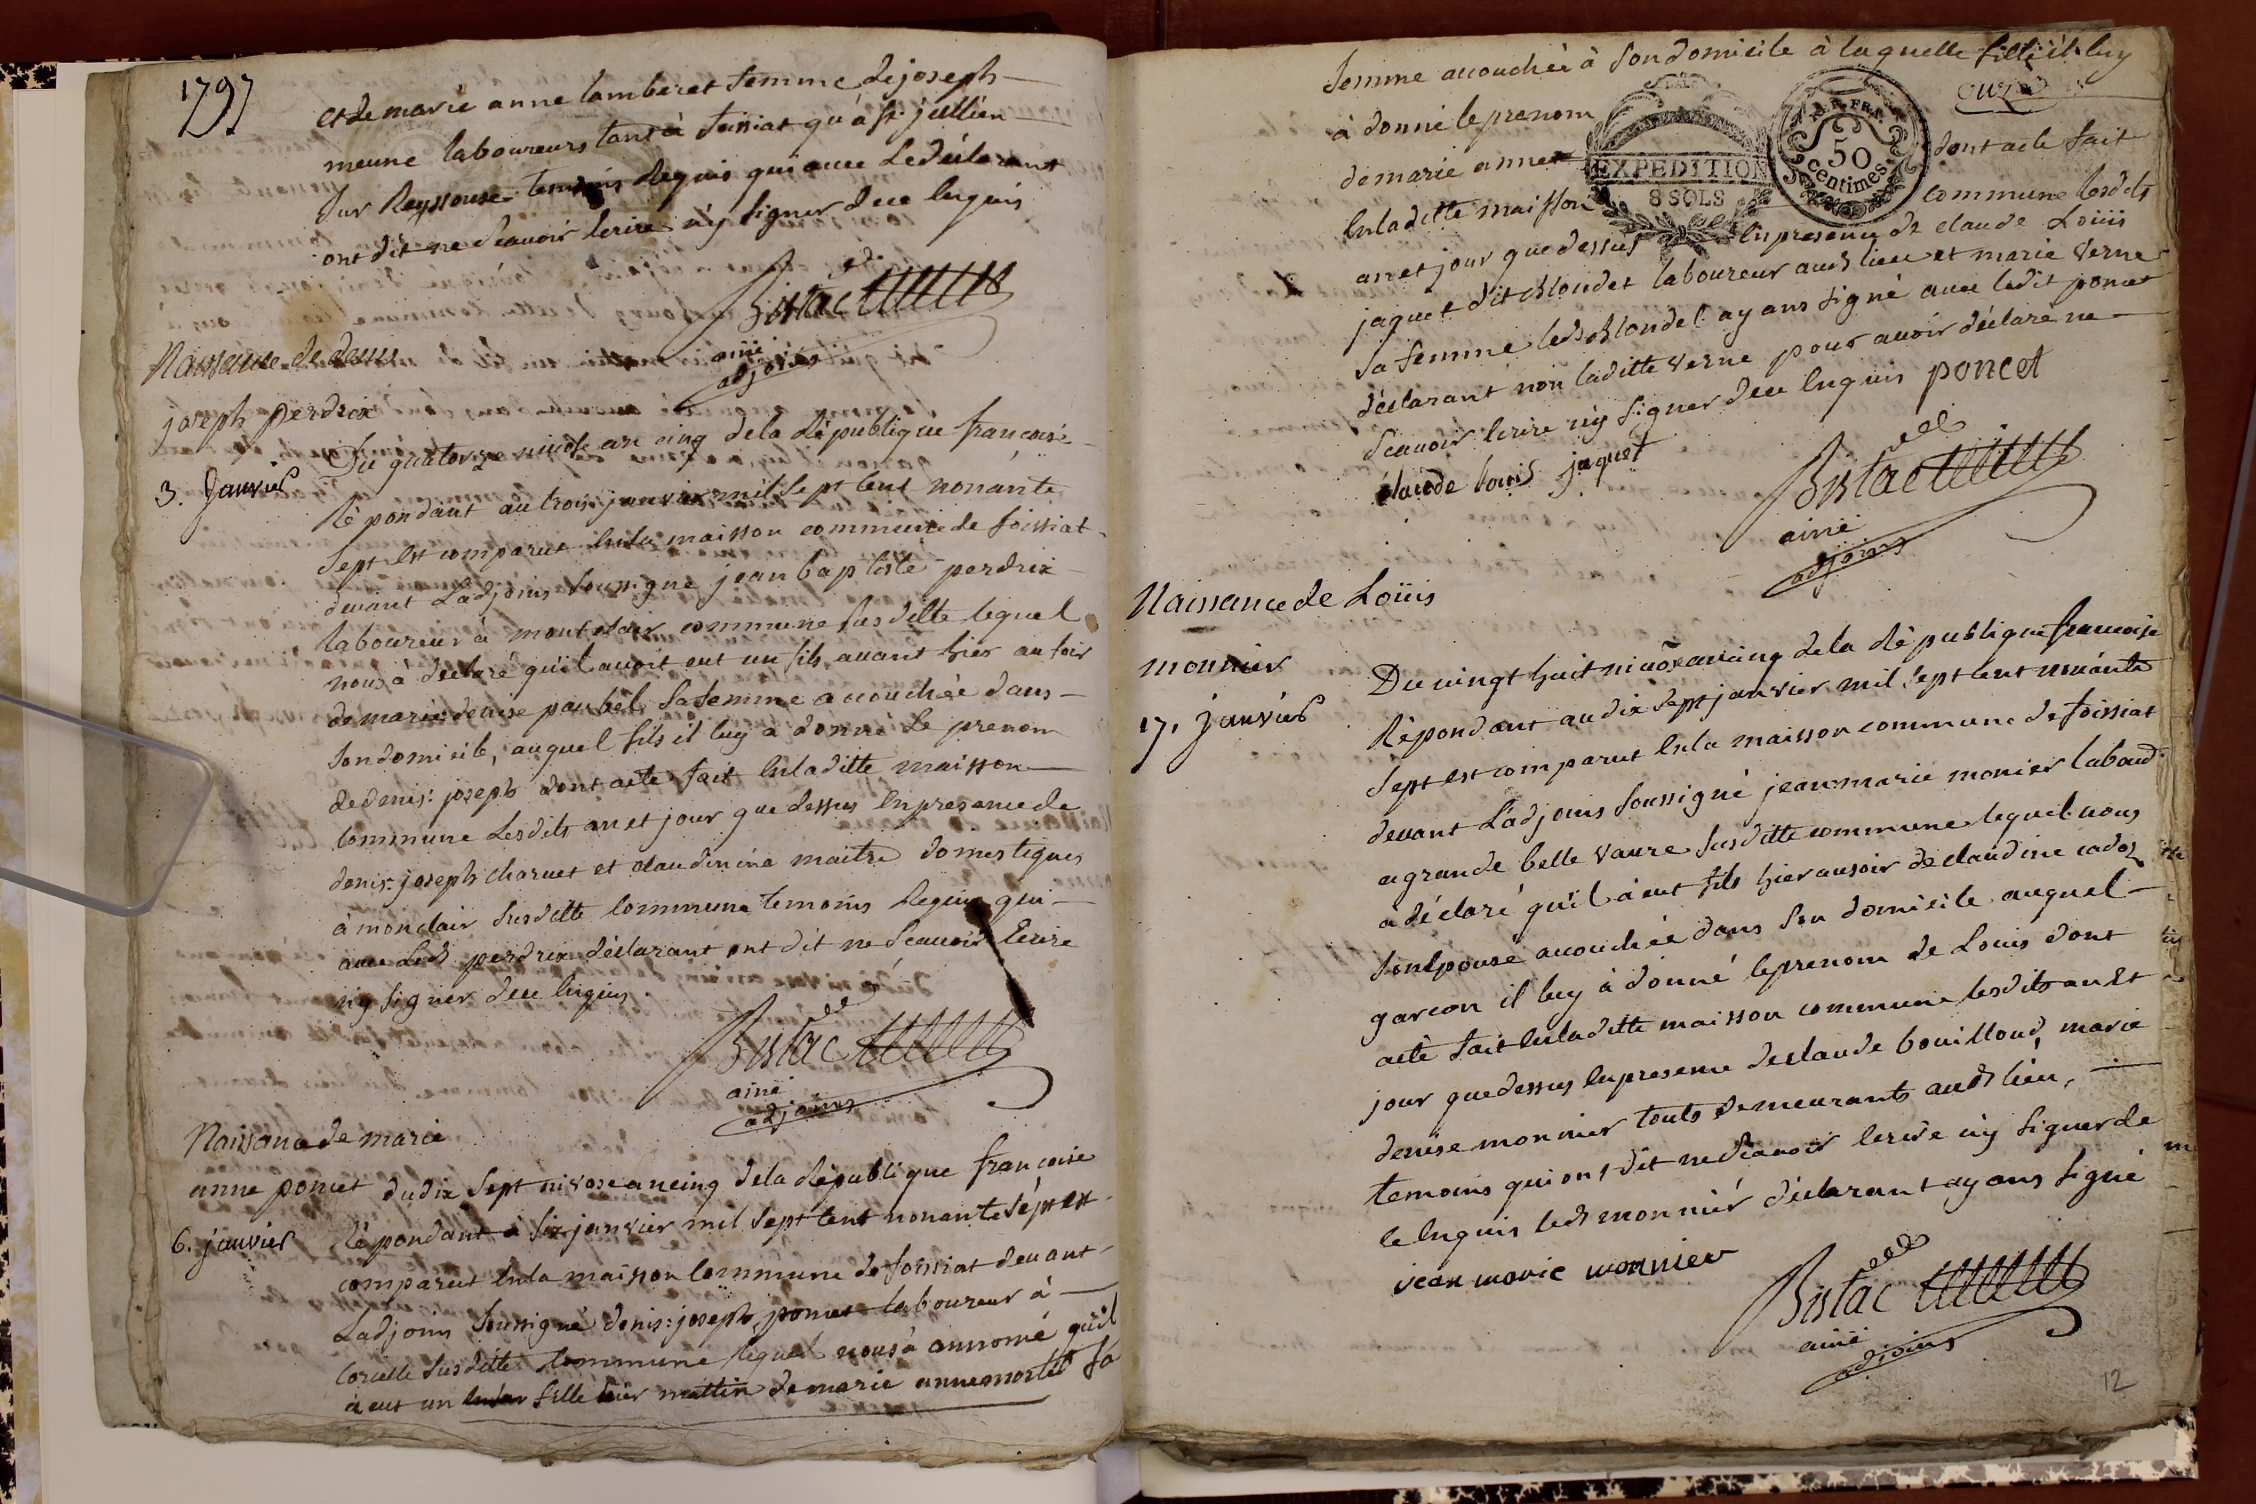 1797
et de marie anne lamberet femme de joseph
meune laboureurs tant à foissiat qu'à st. jullien
sur Reyssouse temoins Requis qui avec Le déclarant
ont dit ne scavoir écrire n'y signer de ce enquis
Bistac
ainé
adjoins
Naissance de denis
joseph perdrix
3. Janvier
Du quatorze nivose an cinq de la République francoise
Répondant au trois janvier mil sept cent nonante
sept est comparut en la maison commune de foissiat
devant L'adjoins soussigné jean baptiste perdrix
laboureur à montclair commune susditte lequel
nous à declaré qu'il avoit eut un fils avant hier au soir
de marie denise paubel sa femme accouchée dans
son domicile, auquel fils il luy à donné le prenom
de denis: joseph dont acte fait en laditte maisson
commune Lesdits an et jour que dessus en presence de
denis: joseph charvet et claudinine maitre domestiques
à monclair susditte commune temoins Requis qui
avec Led perdrix déclarant ont dit ne scavoir Ecrire
n'y signer de ce enquis.
Bistac
ainé
adjoins
Naissance de marie
anne poncet
6. janvier
du dix sept nivose an cinq de la République francoise
Répondant à six janvier mil sept cent nonante sept est
comparut en la maisson commune de foissiat devant
Ladjoins soussigné denis: joseph poncet laboureur à
corcelle susditte commune lequel nous à annoncé qu'il
à eut un fille hier mattin de marie anne mortel sa
femme accouchée à son domicile à laquelle fille il luy
à donné le prenom
EXPEDITION
8 SOLS
REP. FRA.
50
centimes
de marie anne dont acte fait
en laditte maisson commune lesdits
an et jour que dessus en presence de claude Loüis
jaquet dit blondet laboureur aud lieu et marie verne
sa femme led blondet ayans signé avec ledit poncet
déclarant non laditte verne pour avoir déclaré ne
scavoir écrire n'y signer de ce enquis poncet
claude louis jaquet
Bistac
ainé
adjoins
Naissance de Loüis
monnier
17. Janvier
Du vingt huit nivôse an cinq de la République francoise
Répondant au dix sept janvier mil sept cent nonante
sept est comparut en la maisson commune de foissiat
devant L'adjoins soussigné jean marie monier labour
a grande belle vavre susditte commune lequel nous
à déclaré qu'il à eut fils hier au soir de claudine cadoz
son épouse accouchée dans son domicile auquel
garcon il luy à donné le prenom de Louis dont
acte fait en laditte maisson commune lesdits an et
jour que dessus en presence de claude bouilloud, marie
denise monnier touts demeurants aud lieu,
temoins qui ont dit ne scavoir ecrire n'y signer de
ce enquis led monnier déclarant ayans signé
jean marie monnier
Bistac
ainé
adjoins
12